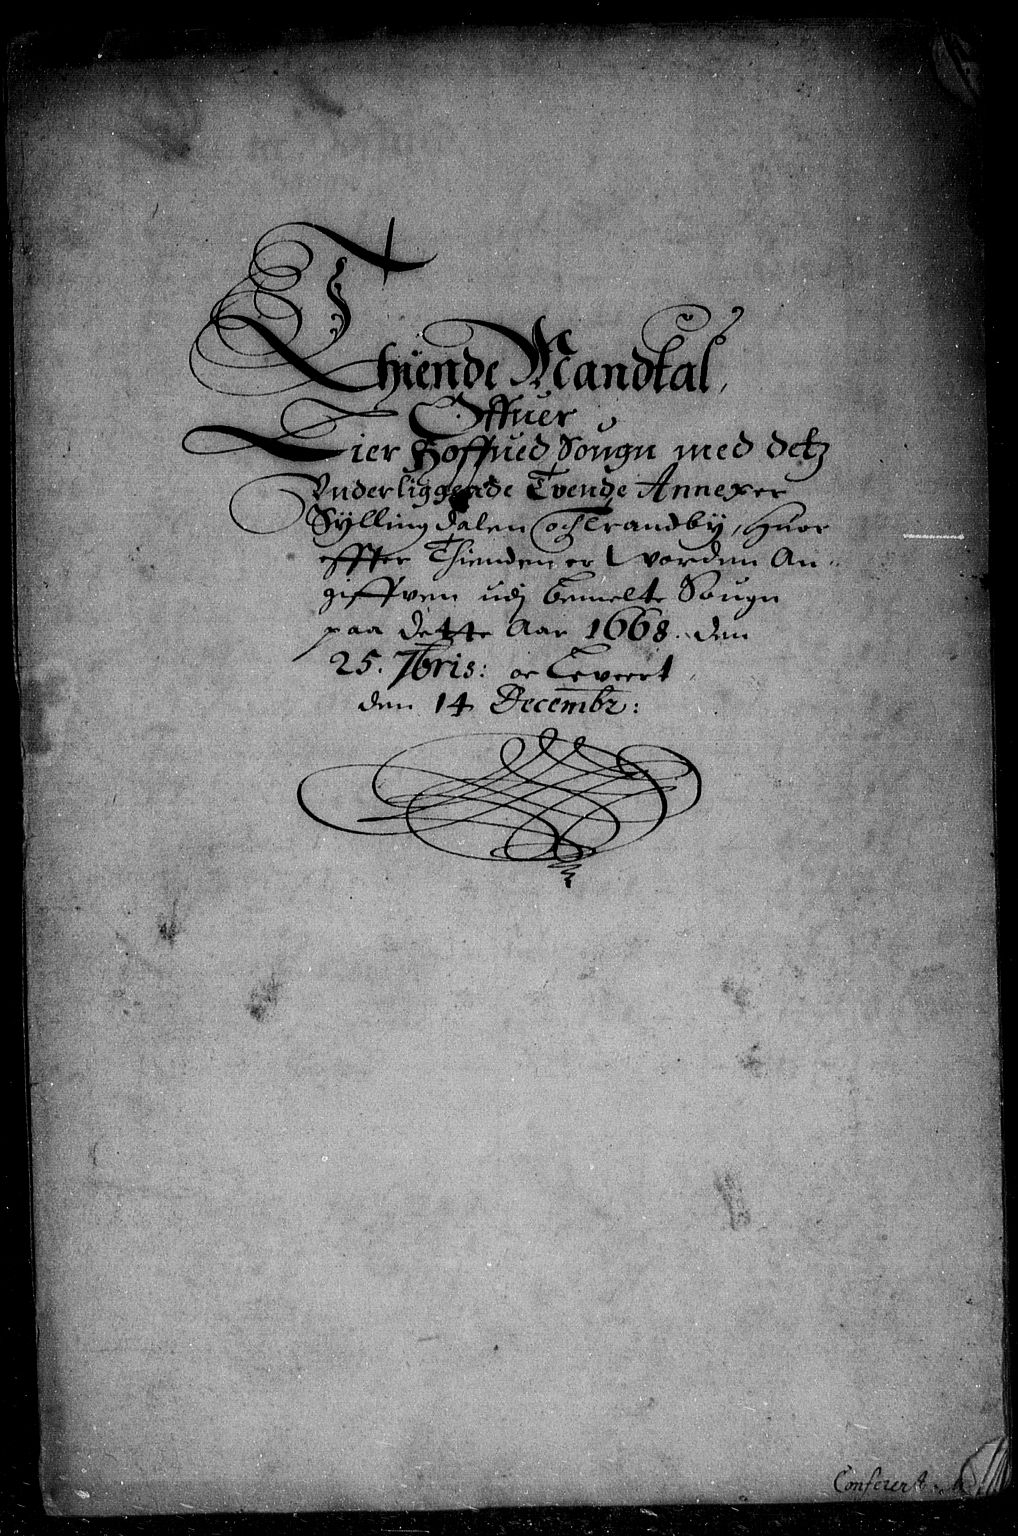 Thiende Mandtal,
Offuer
Lier Hoffued Sougn med detz
Vnderliggende Tvende Annexer
Syllingdalen och Trandby, Huor
effter Thienden er worden An-
giffven udj bemelte Sougn
paa dette Aar 1668. den
25. 7bris: oc Leveert
den 14 Decembr:
Conferert